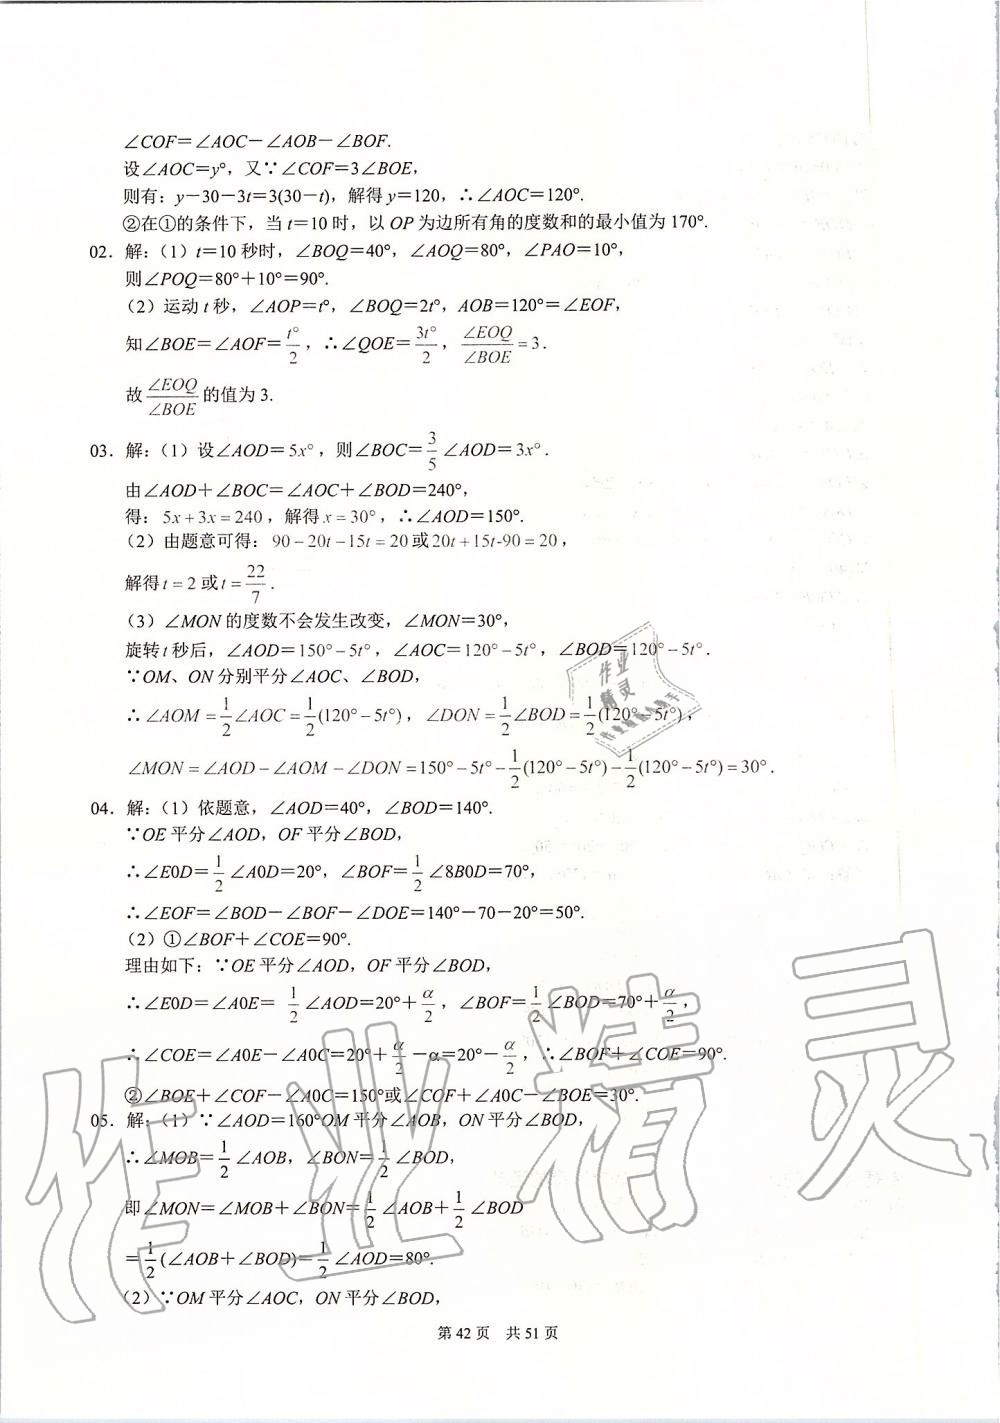 ∠COF＝∠AOC－∠AOB－∠BOF.
设∠AOC＝y°，又∵∠COF＝3∠BOE，
则有：y－30－3t＝3(30－t)，解得 y＝120，∴∠AOC＝120°.
②在①的条件下，当 t＝10 时，以 OP 为边所有角的度数和的最小值为 170°.
02．解：（1）t＝10 秒时，∠BOQ＝40°，∠AOQ＝80°，∠PAO＝10°，
则∠POQ＝80°＋10°＝90°.
（2）运动 t 秒，∠AOP＝t°，∠BOQ＝2t°，AOB＝120°＝∠EOF，
知∠BOE＝∠AOF＝t°/2，∴∠QOE＝3t°/2，∠EOQ/∠BOE＝3.
故∠EOQ/∠BOE的值为 3.
03．解：（1）设∠AOD＝5x°，则∠BOC＝3/5∠AOD＝3x°.
由∠AOD＋∠BOC＝∠AOC＋∠BOD＝240°，
得：5x＋3x＝240，解得 x＝30°，∴∠AOD＝150°.
（2）由题意可得：90－20t－15t＝20或20t＋15t-90＝20，
解得 t＝2 或 t＝22/7.
（3）∠MON 的度数不会发生改变，∠MON＝30°，
旋转 t 秒后，∠AOD＝150°－5t°，∠AOC＝120°－5t°，∠BOD＝120°－5t°.
∵OM、ON 分别平分∠AOC、∠BOD，
∴∠AOM＝1/2∠AOC＝1/2(120°－5t°)，∠DON＝1/2∠BOD＝1/2(120°－5t°)，
∠MON＝∠AOD－∠AOM－∠DON＝150°－5t°－1/2(120°－5t°)－1/2(120°－5t°)＝30°.
04．解：（1）依题意，∠AOD＝40°，∠BOD＝140°.
∵OE 平分∠AOD，OF 平分∠BOD，
∴∠E0D＝1/2∠A0D＝20°，∠BOF＝1/2∠8B0D＝70°，
∴∠EOF＝∠BOD－∠BOF－∠DOE＝140°－70－20°＝50°.
（2）①∠BOF＋∠COE＝90°.
理由如下：∵OE 平分∠AOD，OF 平分∠BOD，
∴∠E0D＝∠A0E＝1/2∠AOD＝20°＋α/2，∠BOF＝1/2∠BOD＝70°＋α/2，
∴∠COE＝∠A0E－∠A0C＝20°＋α/2－α＝20°－α/2，∴∠BOF＋∠COE＝90°.
②∠BOE＋∠COF－∠A0C＝150°或∠COF＋∠A0C－∠BOE＝30°.
05．解：（1）∵∠AOD＝160°OM 平分∠AOB，ON 平分∠BOD，
∴∠MOB＝1/2∠AOB，∠BON＝1/2∠BOD，
即∠MON＝∠MOB＋∠BON＝1/2∠AOB＋1/2∠BOD
＝1/2(∠AOB＋∠BOD)＝1/2∠AOD＝80°.
（2）∵OM 平分∠AOC，ON 平分∠BOD，
第 42 页 共 51 页
作业精灵